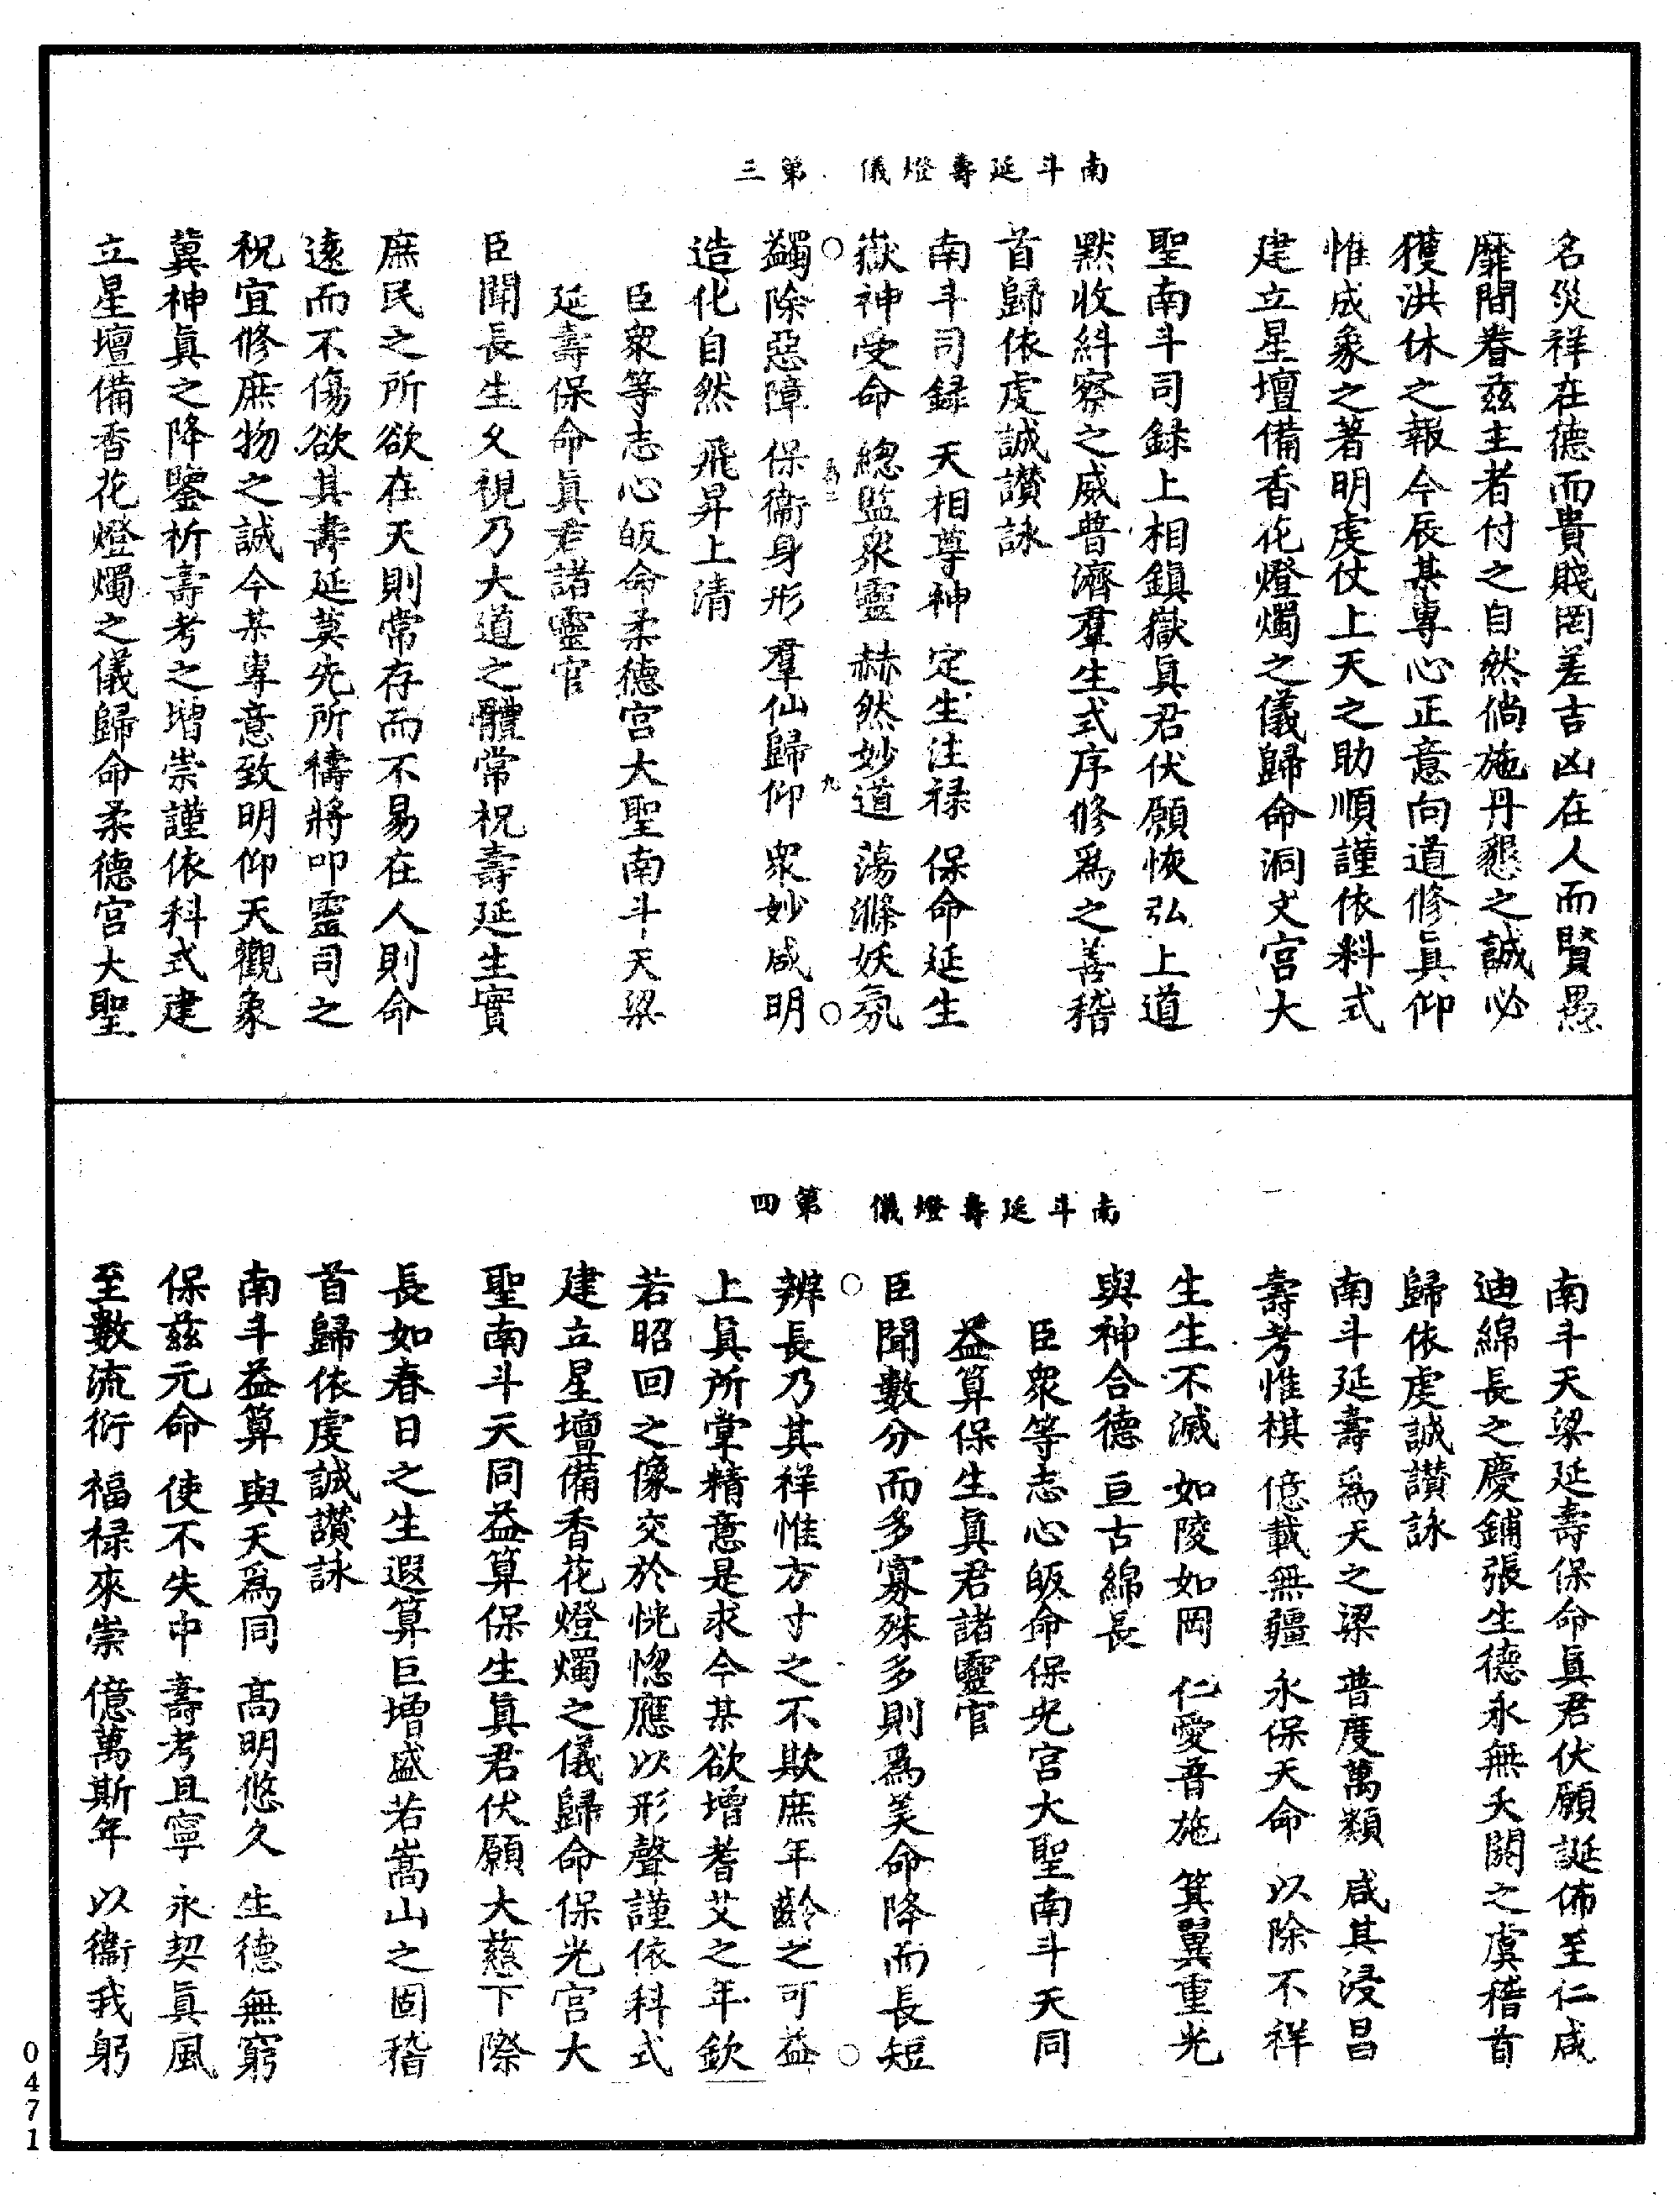 南斗延壽燈儀　第三
名災祥在德而貴賤罔差吉凶在人而賢愚
靡間眷茲主者付之自然倘施丹懇之誠必
獲洪休之報今辰某專心正意向道修眞仰
惟成象之著明虔仗上天之助順謹依科式
建立星壇備香花燈燭之儀歸命洞文宮大
聖南斗司錄上相鎮嶽眞君伏願恢弘上道
默收糾察之威普濟羣生式序修爲之善稽
首歸依虔誠讚詠
南斗司録　天相尊神　定生注祿　保命延生
嶽神受命　總監衆靈　赫然妙道　蕩滌妖氛
蠲除惡障　保衞身形　羣仙歸仰　衆妙咸明
造化自然　飛昇上清
臣衆等志心皈命柔德宮大聖南斗天梁
延壽保命眞君諸靈官
臣聞長生久視乃大道之體常祝壽延生實
庶民之所欲在天則常存而不易在人則命
遠而不傷欲其壽延莫先所禱將叩靈司之
祝宜修庶物之誠今某專意致明仰天觀象
冀神眞之降鑒祈壽考之增崇謹依科式建
立星壇備香花燈燭之儀歸命柔德宮大聖
南斗延壽燈儀　第四
南斗天梁延壽保命眞君伏願誕佈至仁咸
迪綿長之慶鋪張生德永無夭閼之虞稽首
歸依虔誠讚詠
南斗延壽　爲天之梁　普度萬類　咸其浸昌
壽考惟祺　億載無疆　永保天命　以除不祥
生生不滅　如陵如岡　仁愛吾施　箕翼重光
與神合德　亘古綿長
臣衆等志心皈命保光宮大聖南斗天同
益算保生眞君諸靈官
臣聞數分而多寡殊多則爲美命降而長短
辨長乃其祥惟方寸之不欺庶年齡之可益
上眞所掌精意是求今某欲增耆艾之年欽
若昭回之像交於恍惚應以形聲謹依科式
建立星壇備香花燈燭之儀歸命保光宮大
聖南斗天同益算保生眞君伏願大慈下際
長如春日之生遐算巨增盛若嵩山之固稽
首歸依虔誠讚詠
南斗益算　與天爲同　高明悠久　生德無窮
保茲元命　使不失中　壽考且寧　永契眞風
至數流衍　福祿來崇　億萬斯年　以衞我躬
0471